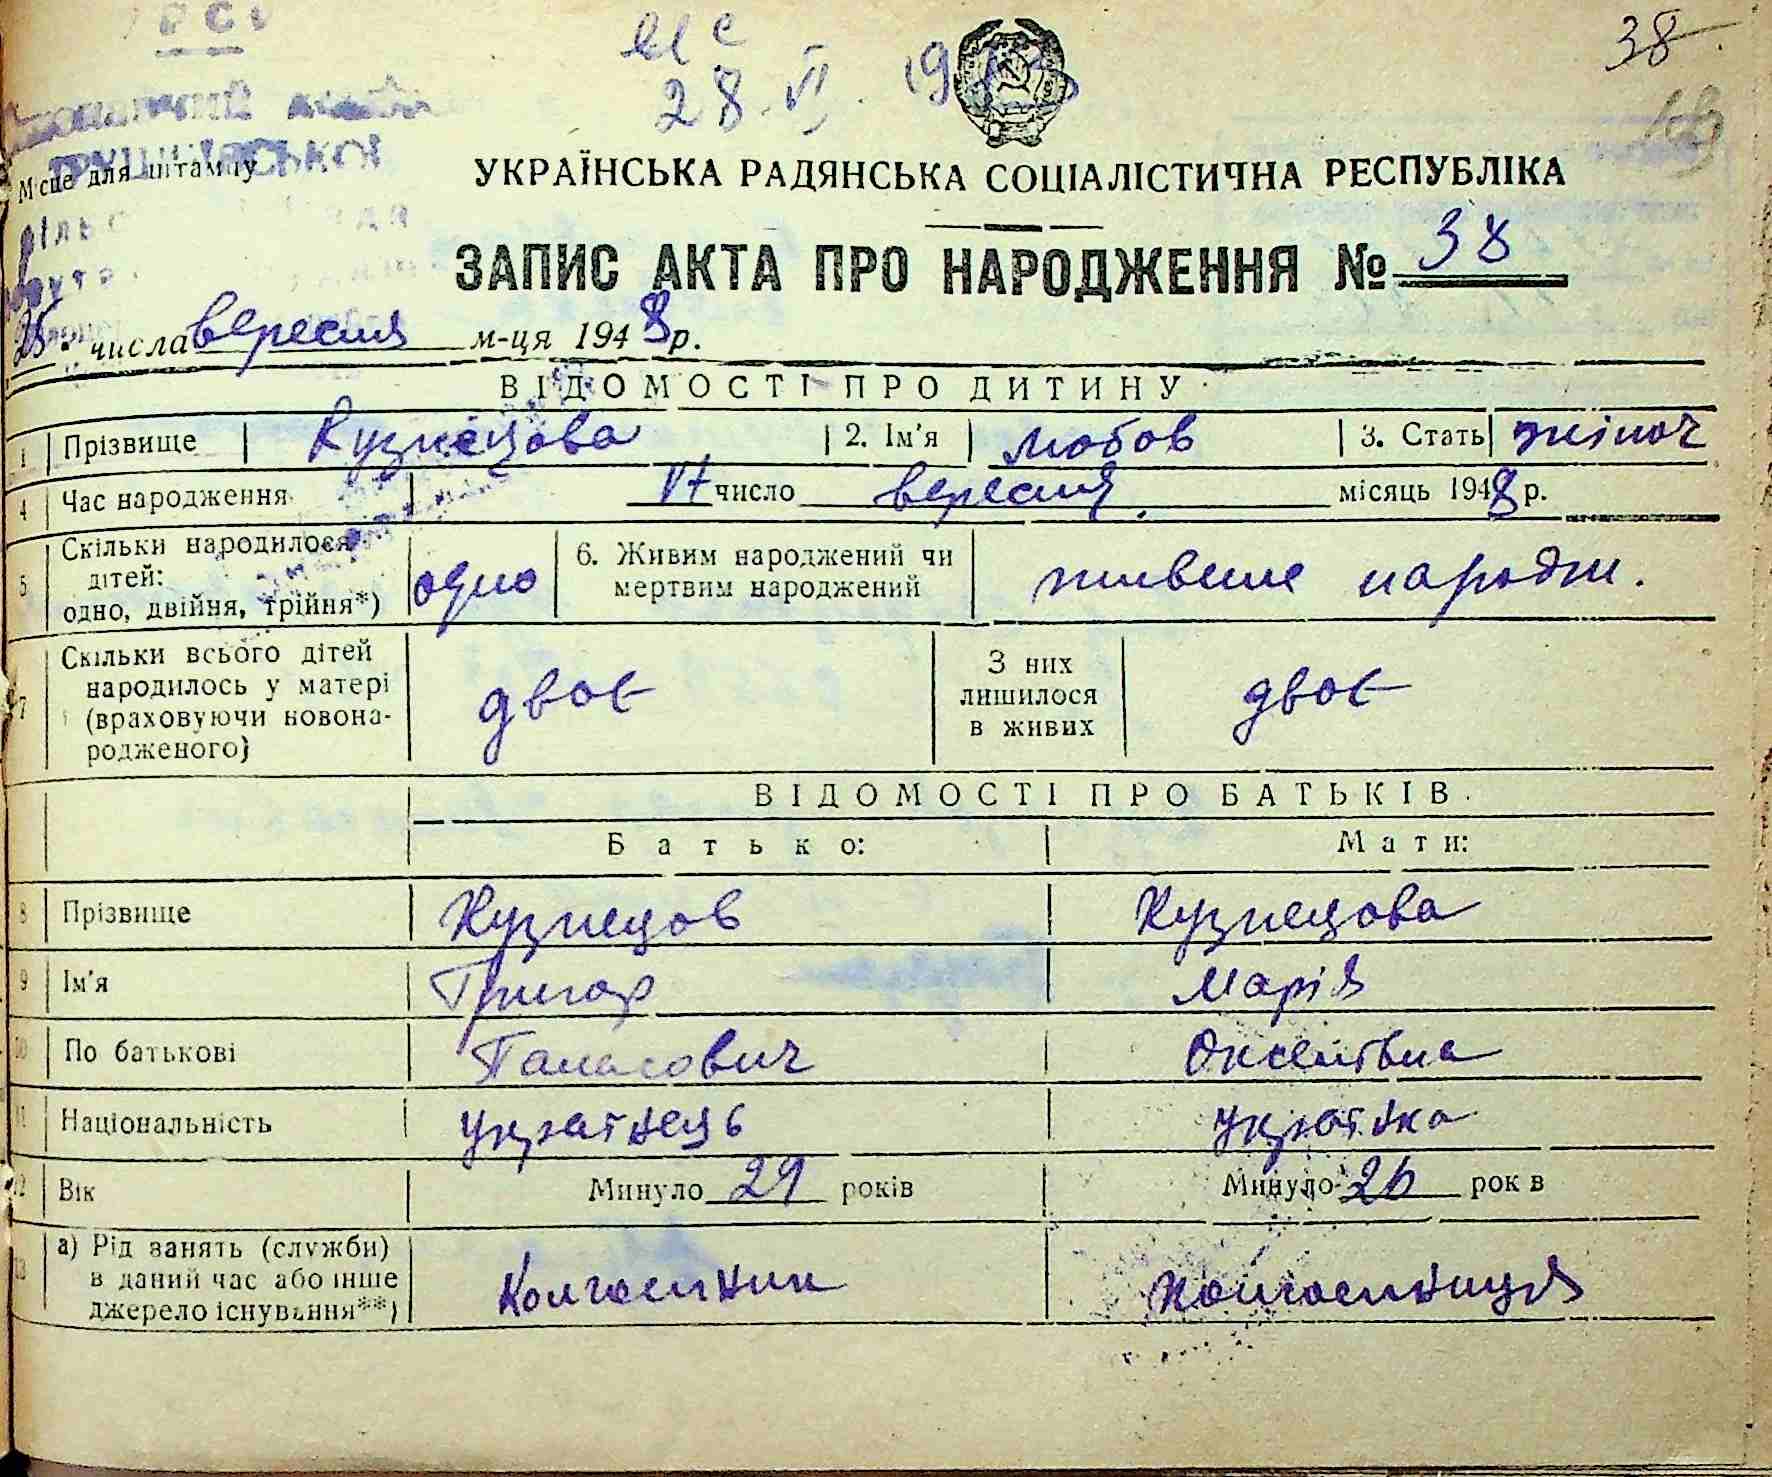 38
28 VI
Місце для штампу
УКРАЇНСЬКА РАДЯНСЬКА СОЦІАЛІСТИЧНА РЕСПУБЛІКА
ЗАПИС АКТА ПРО НАРОДЖЕННЯ № 38
25 числа вересня м-ця 1948 р.
ВІДОМОСТІ ПРО ДИТИНУ
1 Прізвище Кузнєцова 2. Ім'я Любов 3. Стать жіноч
4 Час народження 17 число вересня місяць 1948 р.
5 Скільки народилося дітей: одно, двійня, трійня*) одно 6. Живим народжений чи мертвим народжений живше народж.
7 Скільки всього дітей народилось у матері (враховуючи новонародженого) двоє З них лишилося в живих двоє
ВІДОМОСТІ ПРО БАТЬКІВ.
Батько: Мати:
8 Прізвище Кузнецов Кузнецова
9 Ім'я Григор Марія
10 По батькові Панасович Оксентівна
11 Національність українець українка
12 Вік Минуло 29 років Минуло 26 рок в
13 а) Рід занять (служби) в даний час або інше джерело існування**) Колгоспник Колгоспниця